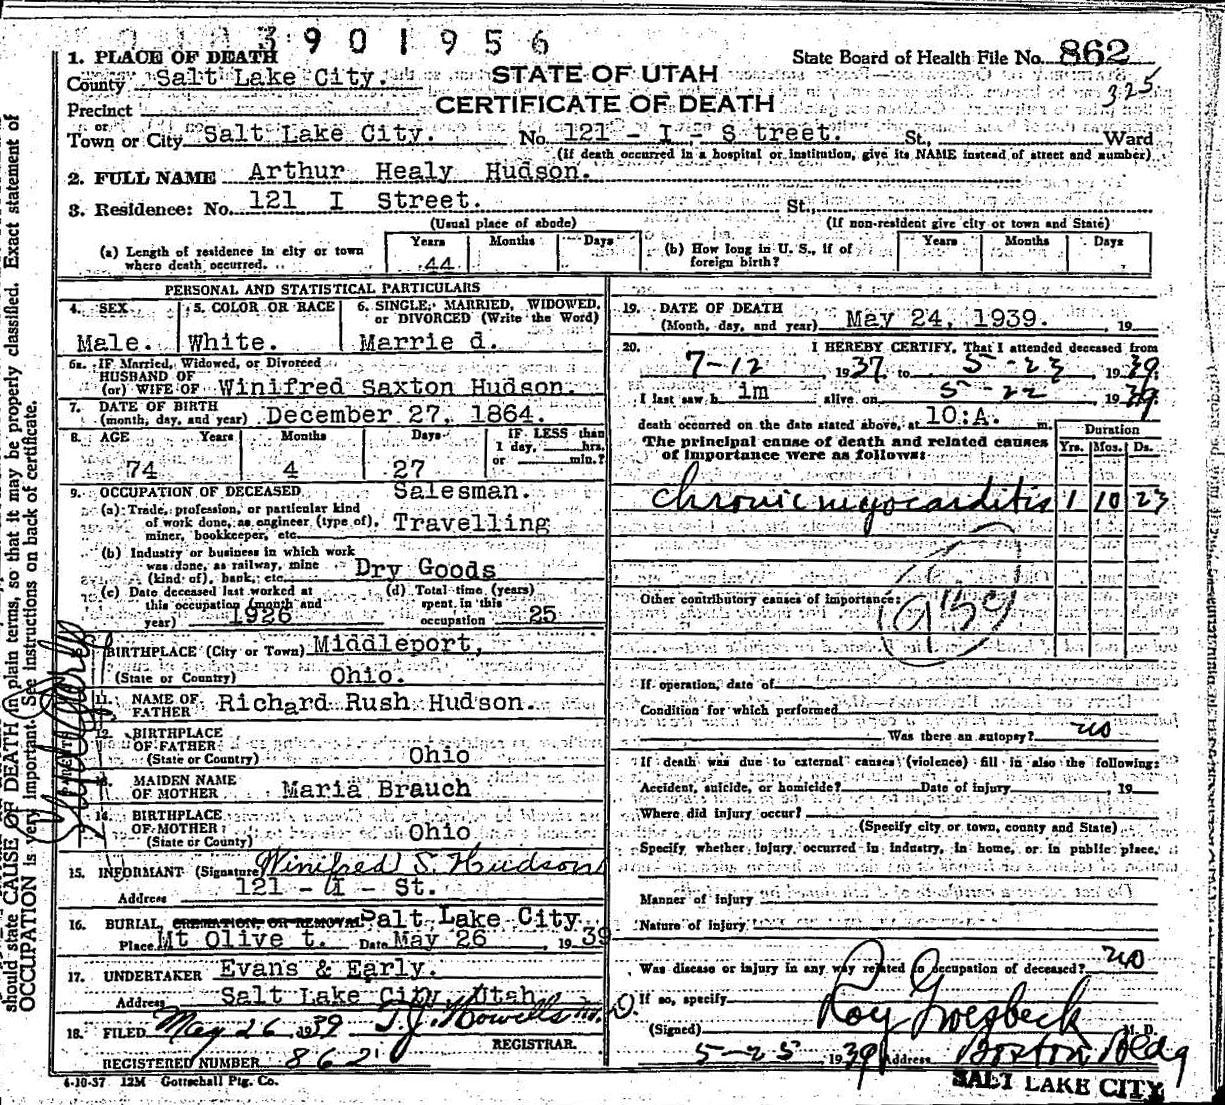 3901956
1. PLACE OF DEATH
County Salt Lake City.
Precinct
or
Town or City Salt Lake City. No. 121 - I - S treet. St., Ward
STATE OF UTAH
CERTIFICATE OF DEATH
State Board of Health File No. 862
325
(If death occurred in a hospital or institution, give its NAME instead of street and number)
2. FULL NAME Arthur Healy Hudson.
3. Residence: No. 121 I Street. St.,
(Usual place of abode) (If non-resident give city or town and State)
(a) Length of residence in city or town where death occurred. Years 44 Months Days
(b) How long in U. S., if of foreign birth? Years Months Days
PERSONAL AND STATISTICAL PARTICULARS
4. SEX Male.
5. COLOR OR RACE White.
6. SINGLE, MARRIED, WIDOWED, or DIVORCED (Write the Word) Marrie d.
6a. IF Married, Widowed, or Divorced
HUSBAND OF
(or) WIFE OF Winifred Saxton Hudson.
7. DATE OF BIRTH
(month, day, and year) December 27, 1864.
8. AGE Years 74 Months 4 Days 27
IF LESS than
1 day, hrs.
or min.?
9. OCCUPATION OF DECEASED Salesman.
(a) Trade, profession, or particular kind
of work done, as engineer (type of), Travelling
miner, bookkeeper, etc.
(b) Industry or business in which work
was done, as railway, mine Dry Goods
(kind of), bank, etc.
(c) Date deceased last worked at
this occupation (month and
year) 1926
(d) Total time (years)
spent in this
occupation 25
BIRTHPLACE (City or Town) Middleport,
(State or Country) Ohio.
11. NAME OF
FATHER Richard Rush Hudson.
12. BIRTHPLACE
OF FATHER
(State or Country) Ohio
MAIDEN NAME
OF MOTHER Maria Brauch
14. BIRTHPLACE
OF MOTHER
(State or Country) Ohio
15. INFORMANT (Signature Winifred S. Hudson
Address 121 - I - St.
16. BURIAL, CREMATION OR REMOVAL Salt Lake City
Place Mt Olive t. Date May 26, 1939
17. UNDERTAKER Evans & Early.
Address Salt Lake City, Utah
18. FILED May 26 1939 T. J. Howells M. D.
REGISTRAR.
REGISTERED NUMBER 862
4-10-37 12M Gottschall Ptg. Co.
19. DATE OF DEATH
(Month, day, and year) May 24, 1939. , 19
20. I HEREBY CERTIFY, That I attended deceased from
7-12 1937, to 5-23, 1939.
I last saw h im alive on 5-22 1939.
death occurred on the date stated above, at 10:A. m.
The principal cause of death and related causes
of importance were as follows:
Duration
Yrs. Mos. Ds.
chronic myocarditis 1 10 23
Other contributory causes of importance:
If operation, date of
Condition for which performed
Was there an autopsy? no
If death was due to external causes (violence) fill in also the following:
Accident, suicide, or homicide? Date of injury , 19
Where did injury occur?
(Specify city or town, county and State)
Specify whether injury occurred in industry, in home, or in public place,
Manner of injury
Nature of injury
Was disease or injury in any way related to occupation of deceased? no
If so, specify
(Signed) Roy Groesbeck M. D.
5-25 1939 Address Boston Bldg
SALT LAKE CITY
should state CAUSE OF DEATH in plain terms, so that it may be properly classified. Exact statement of
OCCUPATION is very important. See instructions on back of certificate.